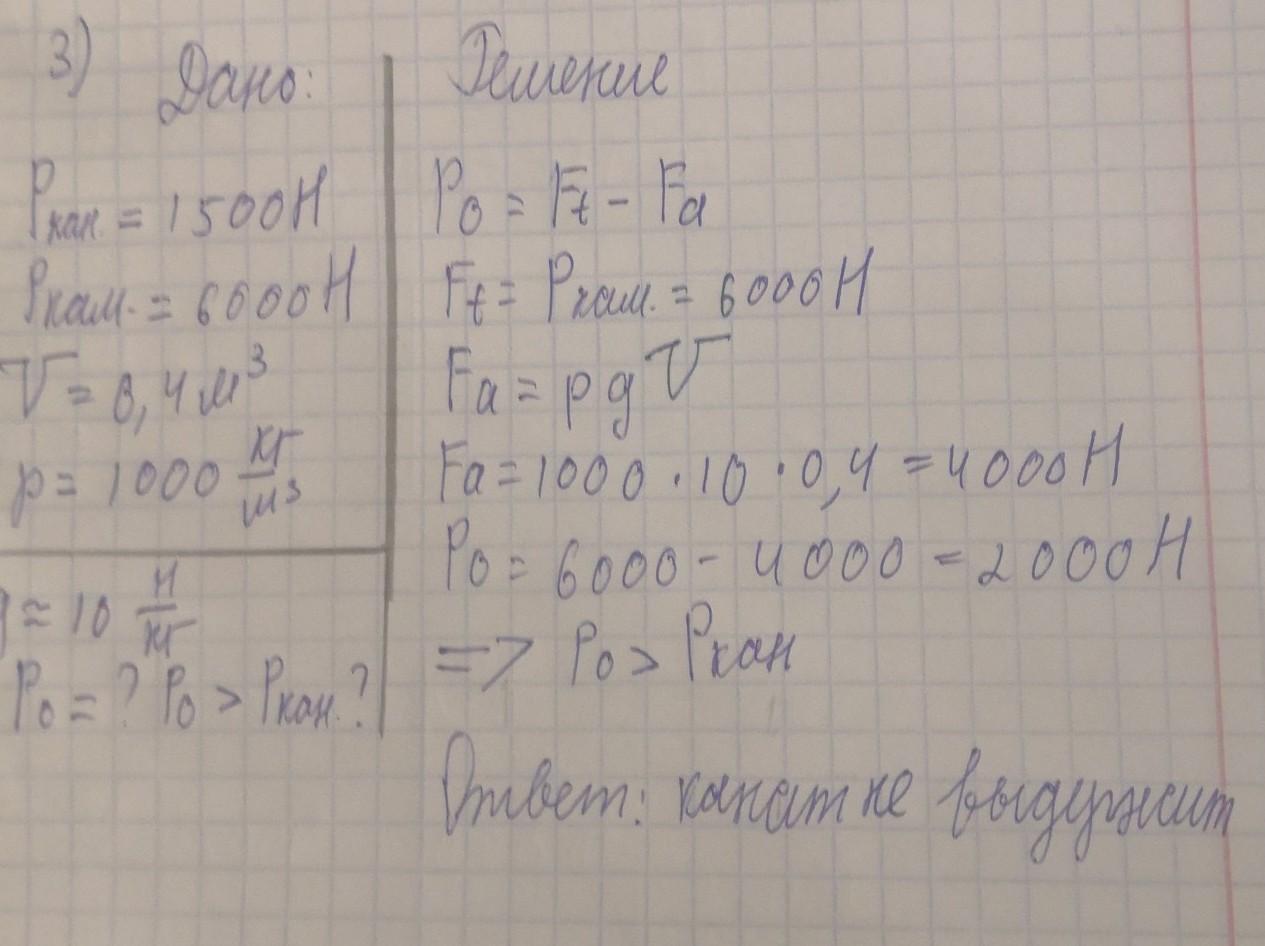 3) Дано:
Pкан. = 1500Н
Pкам. = 6000Н
V = 0,4 м³
p = 1000 кг/м³
g ≈ 10 Н/кг
Po = ? Po > Pкан.?
Решение
Po = Ft - Fa
Ft = Pкам. = 6000Н
Fa = p g V
Fa = 1000 · 10 · 0,4 = 4000Н
Po = 6000 - 4000 = 2000Н
=> Po > Pкан
Ответ: канат не выдержит